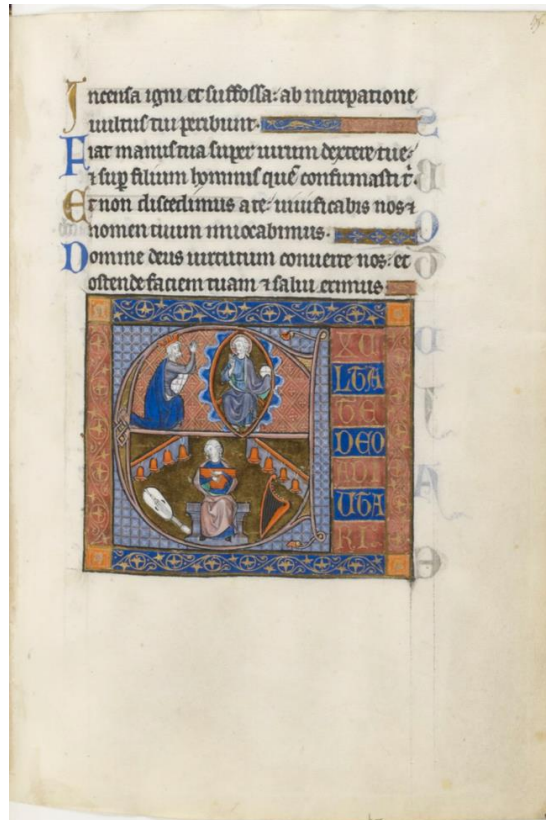 Incensa igni et suffossa: ab increpatione
uultus tui peribunt.
Fiat manus tua super uirum dextere tue:
⁊ sup filium hominis quē confirmasti t̄.
Et non discedimus a te: uiuificabis nos ⁊
nomen tuum inuocabimus.
Domine deus uirtutum conuerte nos: et
ostende faciem tuam ⁊ salui erimus
E
XU
LTA
TE
DEO
ADI
UTO
RI